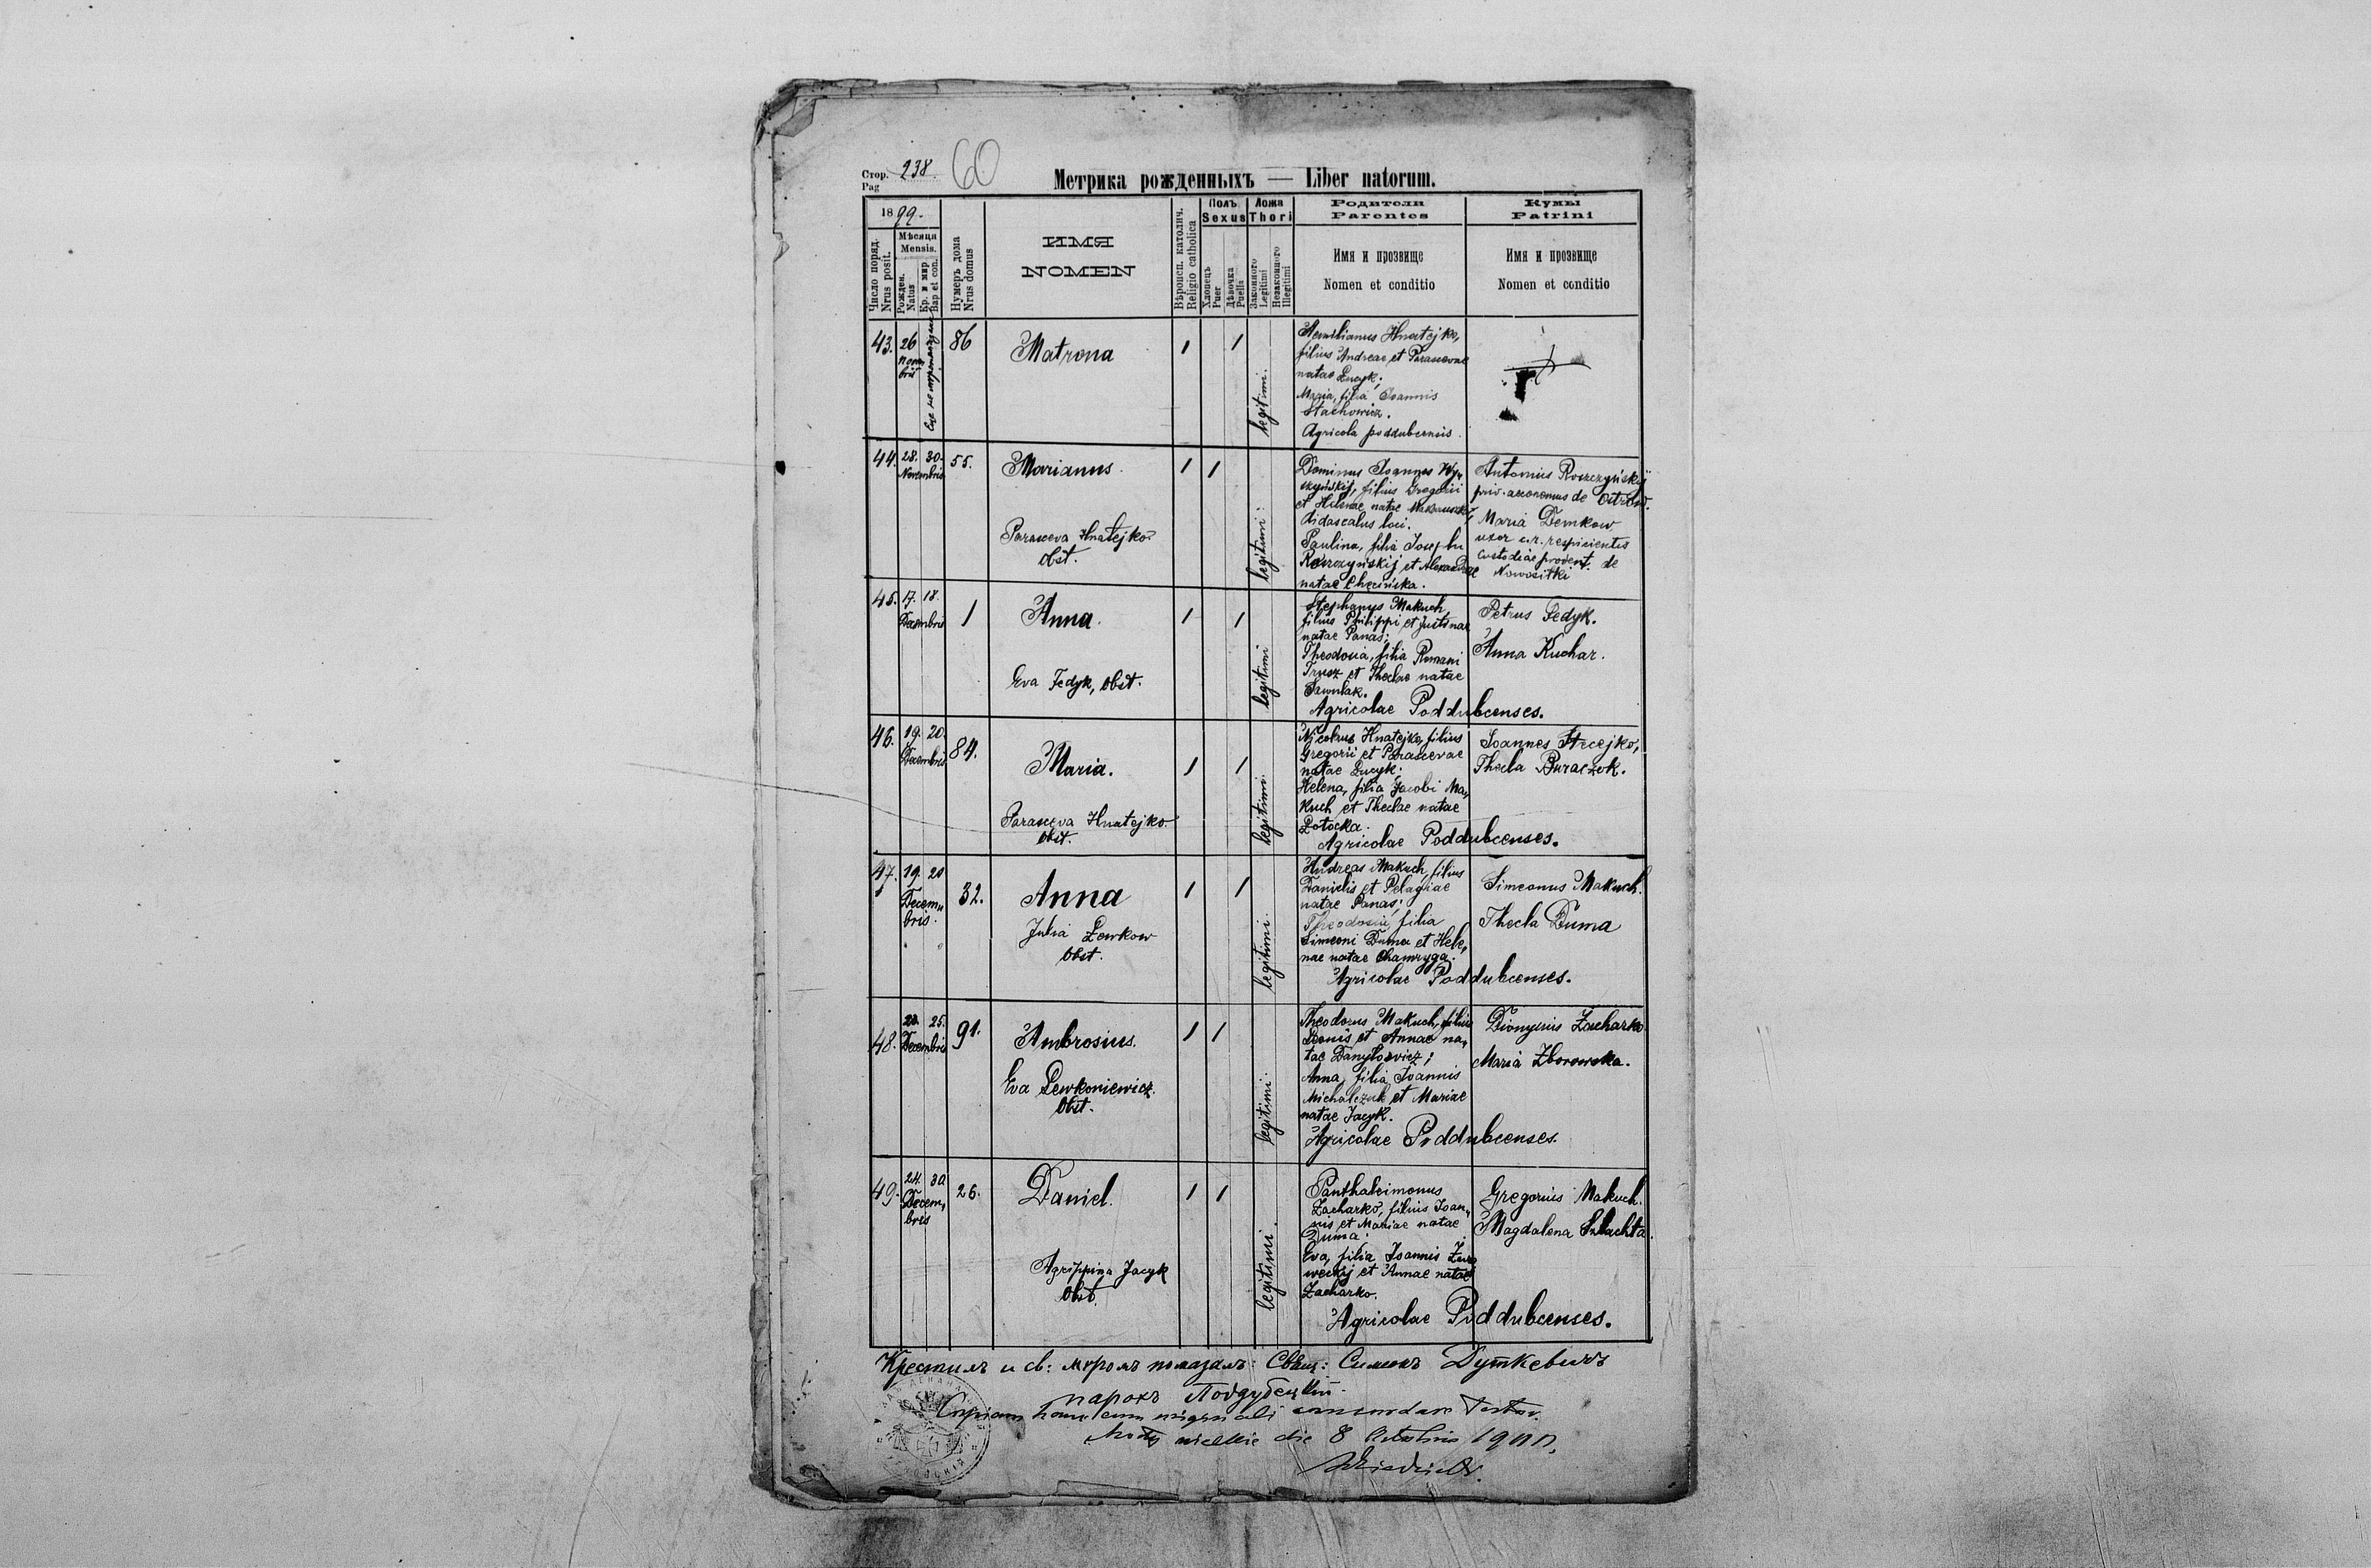 Стор. 238. 60
Pag
Метрика рожденныхъ — Liber natorum.
1899.
Число поряд.
Nrus posit.
Мѣсяця
Mensis.
Рожден.
Natus
Кр. и мир
Bap et con.
Нумеръ дома
Nrus domus
ИМЯ
NOMEN
Вѣроисп. католич.
Religio catholica
Полъ
Sexus
Хлопець
Puer
Дѣвочка
Puella
Ложа
Thori
Законного
Legitimi
Незаконного
Illegitimi
Родители
Parentes
Имя и прозвище
Nomen et conditio
Кумы
Patrini
Имя и прозвище
Nomen et conditio
43. 26
Novem
bris
86
Matrona
1 1
legitimi.
Aemilianus Hnatejko,
filius Andreae et Parascevae
natae Lucyk;
Maria, filia Joannis
Stachowicz.
Agricola poddubcensis.
44. 28. 30. 55.
Novembris
Marianus.
Parasceva Hnatejko
obst.
1 1
legitimi.
Dominus Joannes
filius Gregorii
et Helenae natae
didascalus loci.
Paulina, filia Josephi
et Alexandrae
natae
Antonius
priv. oeconomus de
Maria Demkow
uxor c.r. respicientis
custodiae provent. de
Nowosilki
45. 17. 18. 1
Decembris
Anna.
Eva Fedyk, obst.
1 1
legitimi
Stephanus Makuch,
filius Philippi et Justinae
natae Panas;
Theodosia, filia Romani
Trusz et Theclae natae
Pawulak.
Agricolae Poddubcenses.
Petrus Fedyk.
Anna Kuchar.
46. 19. 20. 84.
Decembris
Maria.
Parasceva Hnatejko
obst.
1 1
legitimi.
Nicolaus Hnatejko, filius
Gregorii et Parascevae
natae Lucyk;
Helena, filia Jacobi Ma„
kuch et Theclae natae
Potocka.
Agricolae Poddubcenses.
Joannes
Thecla Buraczok.
47. 19. 20 32.
Decem„
bris.
Anna
Julia Lewkow
obst.
1 1
legitimi.
Andreas Makuch, filius
Danielis et Pelagiae
natae Panas;
Theodosia, filia
Simeoni Duma et Hele„
nae natae Chamryga.
Agricolae Poddubcenses.
Simeonus Makuch.
Thecla Duma
48. 25. 91.
Decembris
Ambrosius.
Eva Lewkoniewicz.
Obst.
1 1
legitimi.
Theodorus Makuch, filius
Leonis et Annae na„
tae Danyłowicz;
Anna, filia Joannis
Michalczuk et Mariae
natae Jacyk.
Agricolae Poddubcenses.
Dionysius Zacharko
Maria Zborowska.
49. 24. 30 26.
Decem„
bris
Daniel.
Agrippina Jacyk
Obst.
1 1
legitimi.
Panthaleimonus
Zacharko, filius Joan„
nis et Mariae natae
Duma.
Eva, filia Joannis
et Annae natae
Zacharko.
Agricolae Poddubcenses.
Gregorius Makuch.
Magdalena Szlachta.
Крестилъ и св: мѵромъ помазалъ: Свящ: Симеонъ Дуткевичъ
парохъ Поддубецкій.
Copiam hanc cum originali concordare testor.
die 8 Octobris 1900.